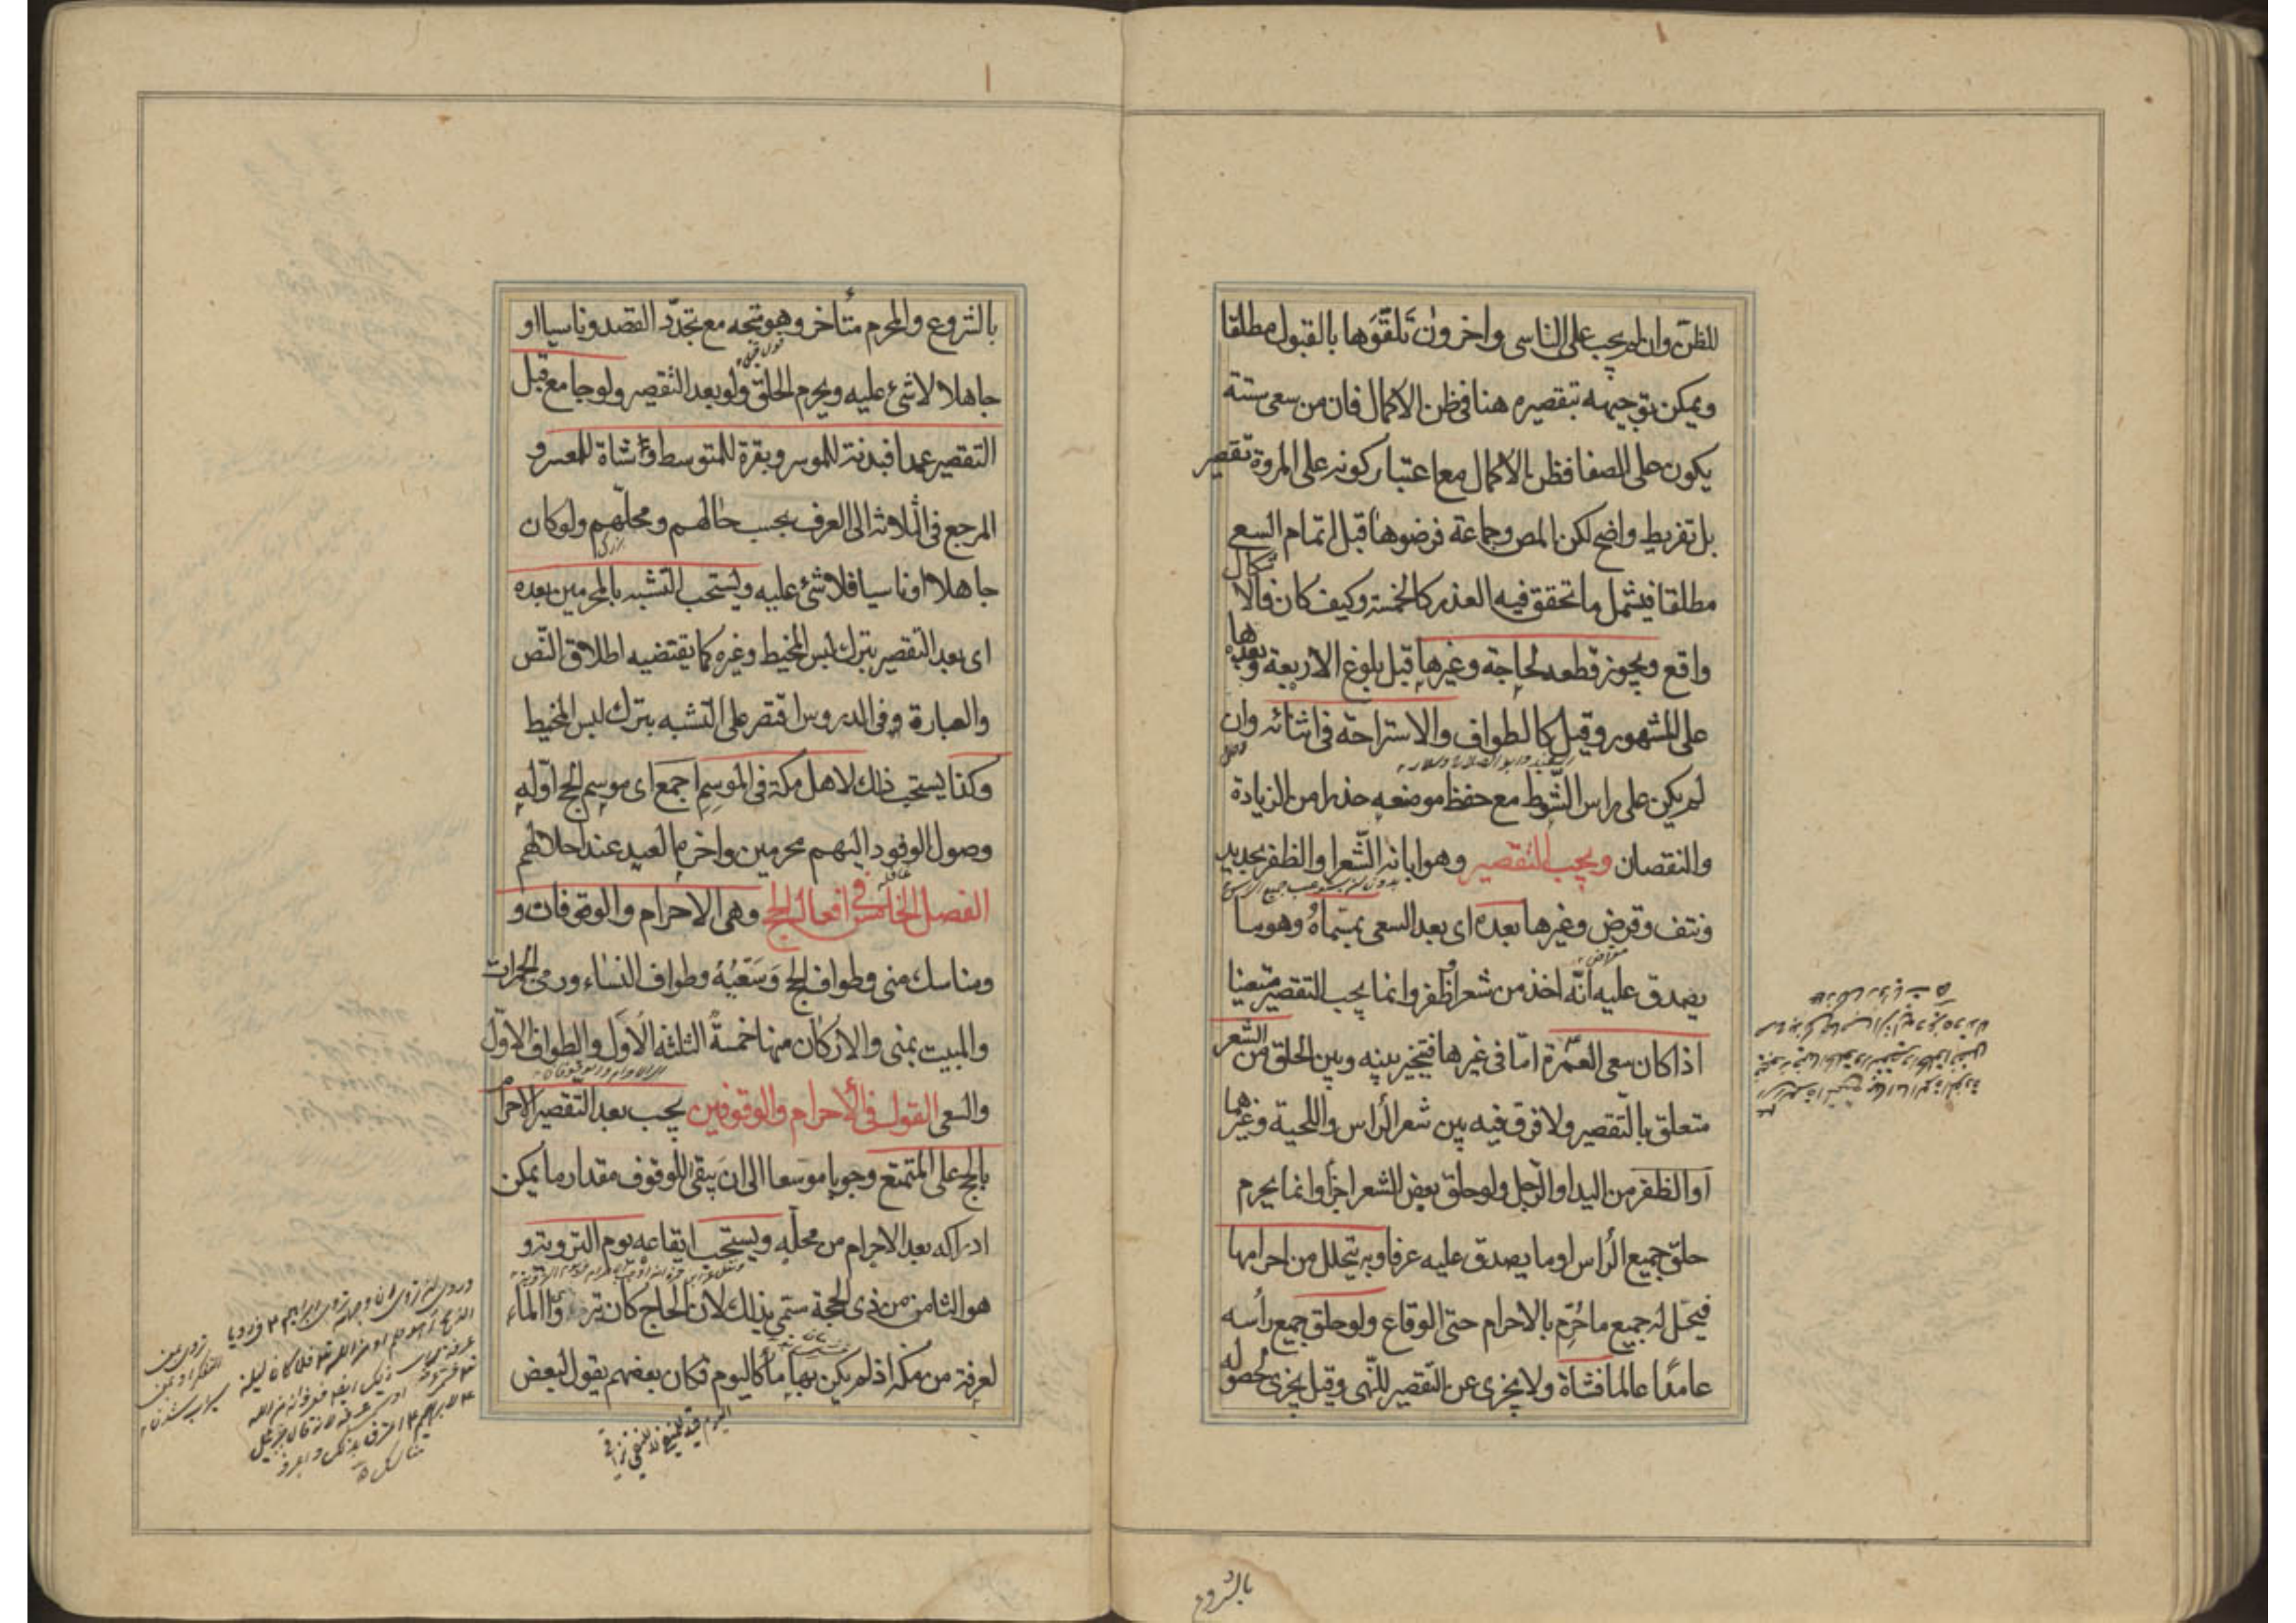 للظن وان لم يجب على الناسى واخرون تلقوها بالقبول مطلقا
ويمكن توجيهه بتقصيره هنا فى ظن الاكمال فان من سعى ستة
يكون على الصفا فظن الاكمال مع اعتبار كونه على المروة تقصير
بل تفريط واضح لكن المص وجماعة فرضوها قبل اتمام السعى
مطلقا فيشمل ما تحقق فيه العذر كالخمسة وكيف كان فالاشكال
واقع ويجوز قطعه لحاجة وغيرها قبل بلوغ الاربعة وبعدها
على المشهور وقيل كالطواف والاستراحة فى اثنائه وان
لم يكن على راس الشوط مع حفظ موضعه حذرا من الزيادة
والنقصان ويجب التقصير وهو ابانة الشعر او الظفر بحديد
ونتف وقرض وغيرها بعده اى بعد السعى بمسماه وهو ما
يصدق عليه انه اخذ من شعر او ظفر وانما يجب التقصير متعينا
اذا كان سعى العمرة اما فى غيرها فيتخير بينه وبين الحلق من الشعر
متعلق بالتقصير ولا فرق فيه بين شعر الراس واللحية وغيرهما
او الظفر من اليد او الرجل ولو حلق بعض الشعر اجزأ وانما يحرم
حلق جميع الراس او ما يصدق عليه عرفا وبه يتحلل من احرامها
فيحل له جميع ما حرم بالاحرام حتى الوقاع ولو حلق جميع رأسه
عامدا عالما فشاة ولا يجزى عن التقصير للنهى وقيل يجزى لحصوله
بالشروع
بالشروع والمحرم متأخر وهو متجه مع تجدد القصد وناسيا او
جاهلا لا شئ عليه ويحرم الحلق ولو بعد التقصير ولو جامع قبل
التقصير عمدا فبدنة للموسر وبقرة للمتوسط وشاة للمعسر و
المرجع فى الثلاثة الى العرف بحسب حالهم ومحلهم ولو كان
جاهلا او ناسيا فلا شئ عليه ويستحب التشبه بالمحرمين بعده
اى بعد التقصير بترك لبس المخيط وغيره كما يقتضيه اطلاق النص
والعبارة وفى الدروس اقتصر على التشبه بترك لبس المخيط
وكذا يستحب ذلك لاهل مكة فى الموسم اجمع اى موسم الحج اوله
وصول الوفود اليهم محرمين واخره العيد عند احلالهم
الفصل الخامس فى افعال الحج وهى الاحرام والوقوفان و
ومناسك منى وطواف الحج وسعيه وطواف النساء ورمى الجمرات
والمبيت بمنى والاركان منها خمسة الثلثة الاول والطواف الاول
والسعى القول فى الاحرام والوقوفين يجب بعد التقصير الاحرام
بالحج على المتمتع وجوبا موسعا الى ان يبقى للوقوف مقدار ما يمكن
ادراكه بعد الاحرام من محله ويستحب ايقاعه يوم التروية و
هو الثامن من ذى الحجة سمى بذلك لان الحاج كان يتروى الماء
لعرفة من مكة اذ لم يكن بها ماء كاليوم فكان بعضهم يقول لبعض